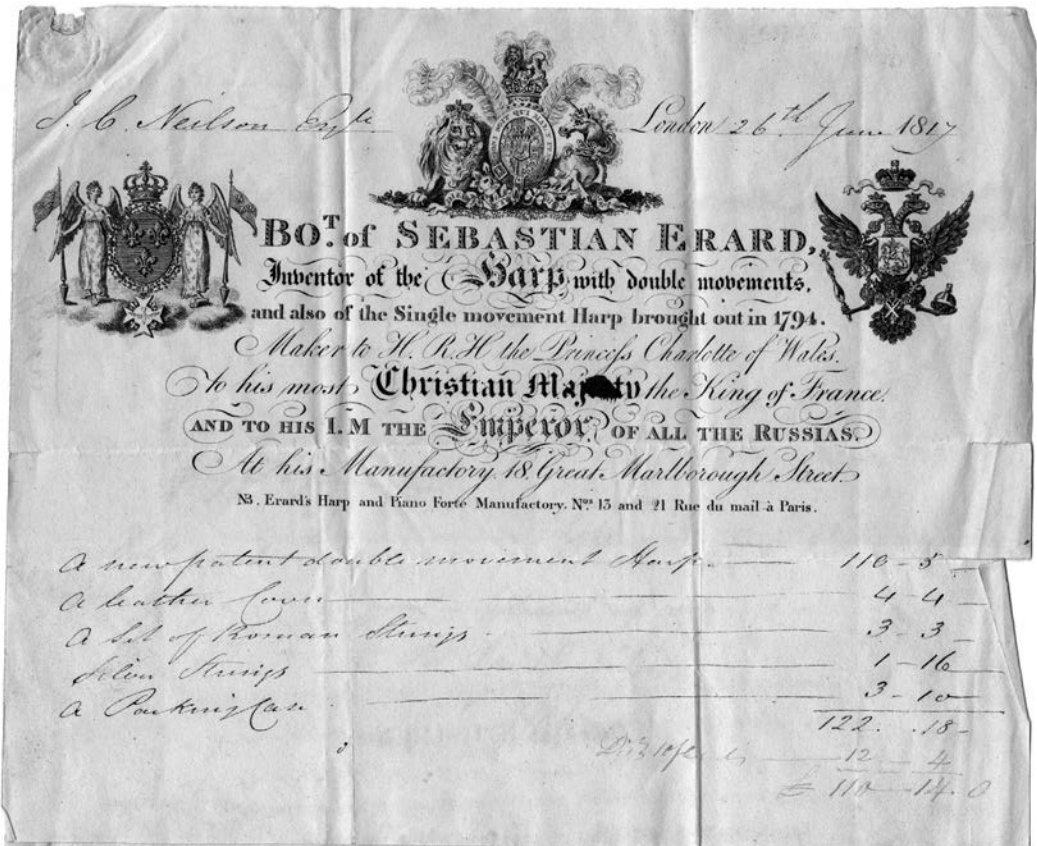 J. C. Neilson Esqre London 26th June 1817
BOT. of SEBASTIAN ERARD,
Inventor of the Harp with double movements,
and also of the Single movement Harp brought out in 1794.
Maker to H. R. H the Princess Charlotte of Wales.
to his most Christian Majesty the King of France.
AND TO HIS I. M THE Emperor OF ALL THE RUSSIAS.
At his Manufactory. 18. Great Marlborough Street.
NB. Erard's Harp and Piano Forte Manufactory. Nos 13 and 21 Rue du mail à Paris.
A new patent double movement Harp. 110 - 5 -
A leather Cover 4 - 4 -
A Set of Roman Strings - 3 - 3 -
Silver Strings 1 - 16
A Packing Case 3 - 10
122. . 18 -
12 - 4
£ 110 - 14. 0